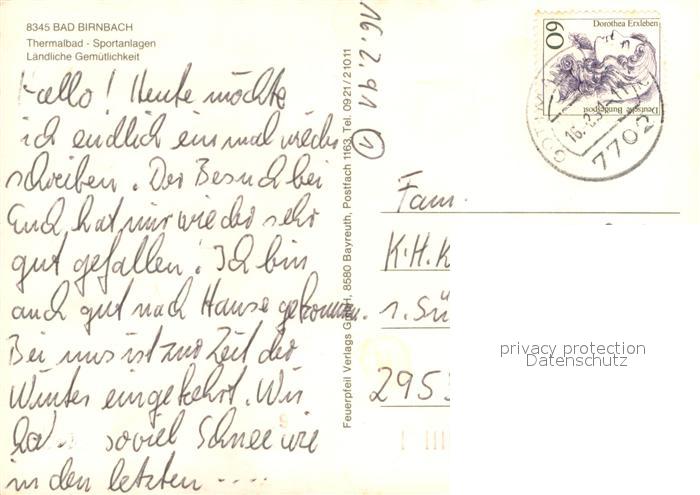 8345 BAD BIRNBACH
Thermalbad - Sportanlagen
Ländliche Gemütlichkeit
Hallo! Heute möchte
ich endlich einmal wieder
schreiben. Der Besuch bei
Euch hat mir wieder sehr
gut gefallen. Ich bin
auch gut nach Hause gekommen.
Bei uns ist zur Zeit der
Winter eingekehrt. Wir
soviel Schnee wie
in den letzten ....
16.2.91
1
Feuerpfeil Verlags GmbH, 8580 Bayreuth, Postfach 1163, Tel. 0921/21011
Dorothea Erxleben
60
Deutsche Bundespost
16.2.
7702
Fam.
K.H.K
1. Sü
295
privacy protection
Datenschutz